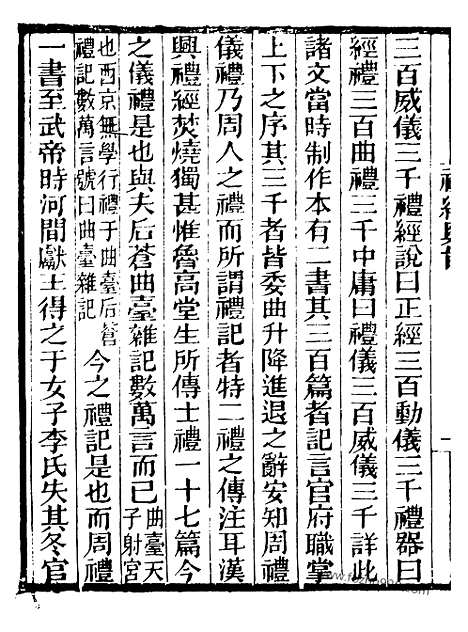 禮經奧旨 一
三百威儀三千禮經說曰正經三百動儀三千禮器曰
經禮三百曲禮三千中庸曰禮儀三百威儀三千詳此
諸文當時制作本有二書其三百篇者記言官府職掌
上下之序其三千者皆委曲升降進退之辭安知周禮
儀禮乃周人之禮而所謂禮記者特二禮之傳注耳漢
興禮經焚燒獨甚惟魯高堂生所傳士禮一十七篇今
之儀禮是也與夫后蒼曲臺雜記數萬言而已曲臺天
子射宮
也西京無學行禮于曲臺后蒼
禮記數萬言號曰曲臺雜記
今之禮記是也而周禮
一書至武帝時河間獻王得之于女子李氏失其冬官